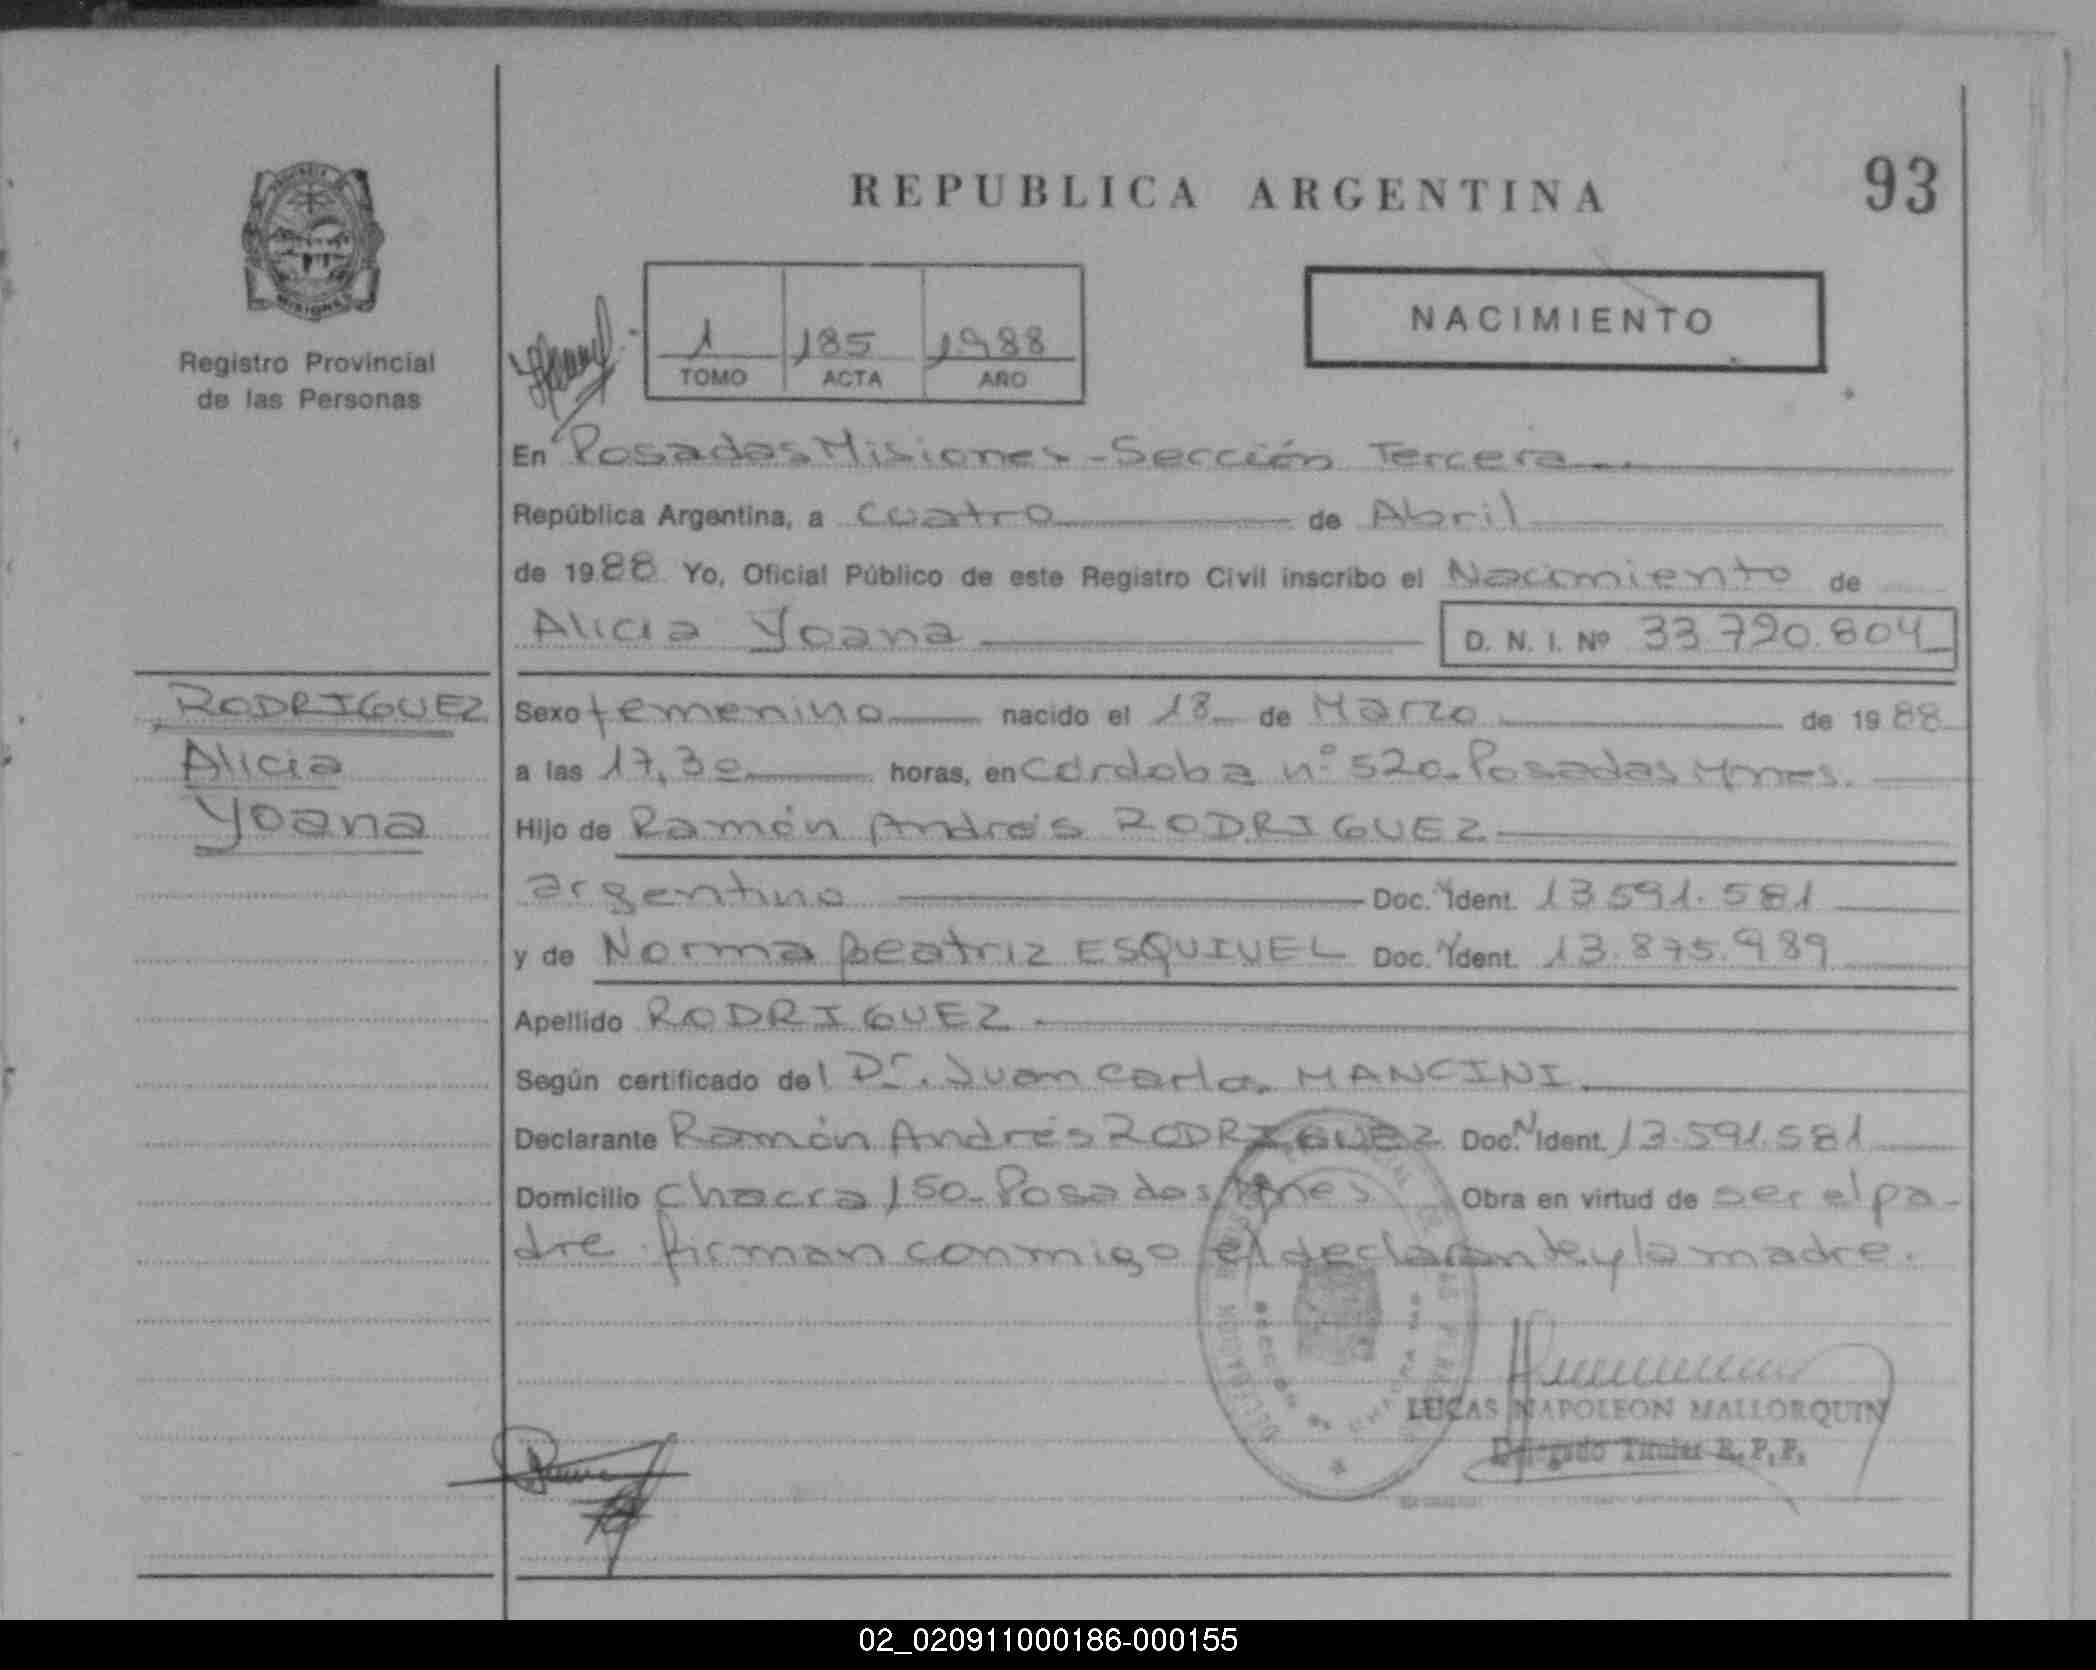 REPUBLICA ARGENTINA
93
Registro Provincial
de las Personas
1 185 1988
TOMO ACTA AÑO
NACIMIENTO
En Posadas Misiones - Sección Tercera
República Argentina, a cuatro de Abril
de 1988 Yo, Oficial Público de este Registro Civil inscribo el Nacimiento de
Alicia Yoana D. N. I. Nº 33.790.804
RODRIGUEZ
Alicia
Yoana
Sexo femenino nacido el 18 de Marzo de 1988
a las 17,30 horas, en Córdoba nº 520. Posadas Mnes.
Hijo de Ramón Andrés RODRIGUEZ
argentino Doc. Ident. 13.591.581
y de Norma Beatriz ESQUIVEL Doc. Ident. 13.875.989
Apellido RODRIGUEZ
Según certificado del Dr. Juan Carlos MANCINI
Declarante Ramón Andrés RODRIGUEZ Doc. N Ident. 13.591.581
Domicilio Chacra 150. Posadas Mnes Obra en virtud de ser el pa-
dre. firman conmigo el declarante y la madre.
LUCAS NAPOLEON MALLORQUIN
Delegado Titular R.P.P.
02_020911000186-000155